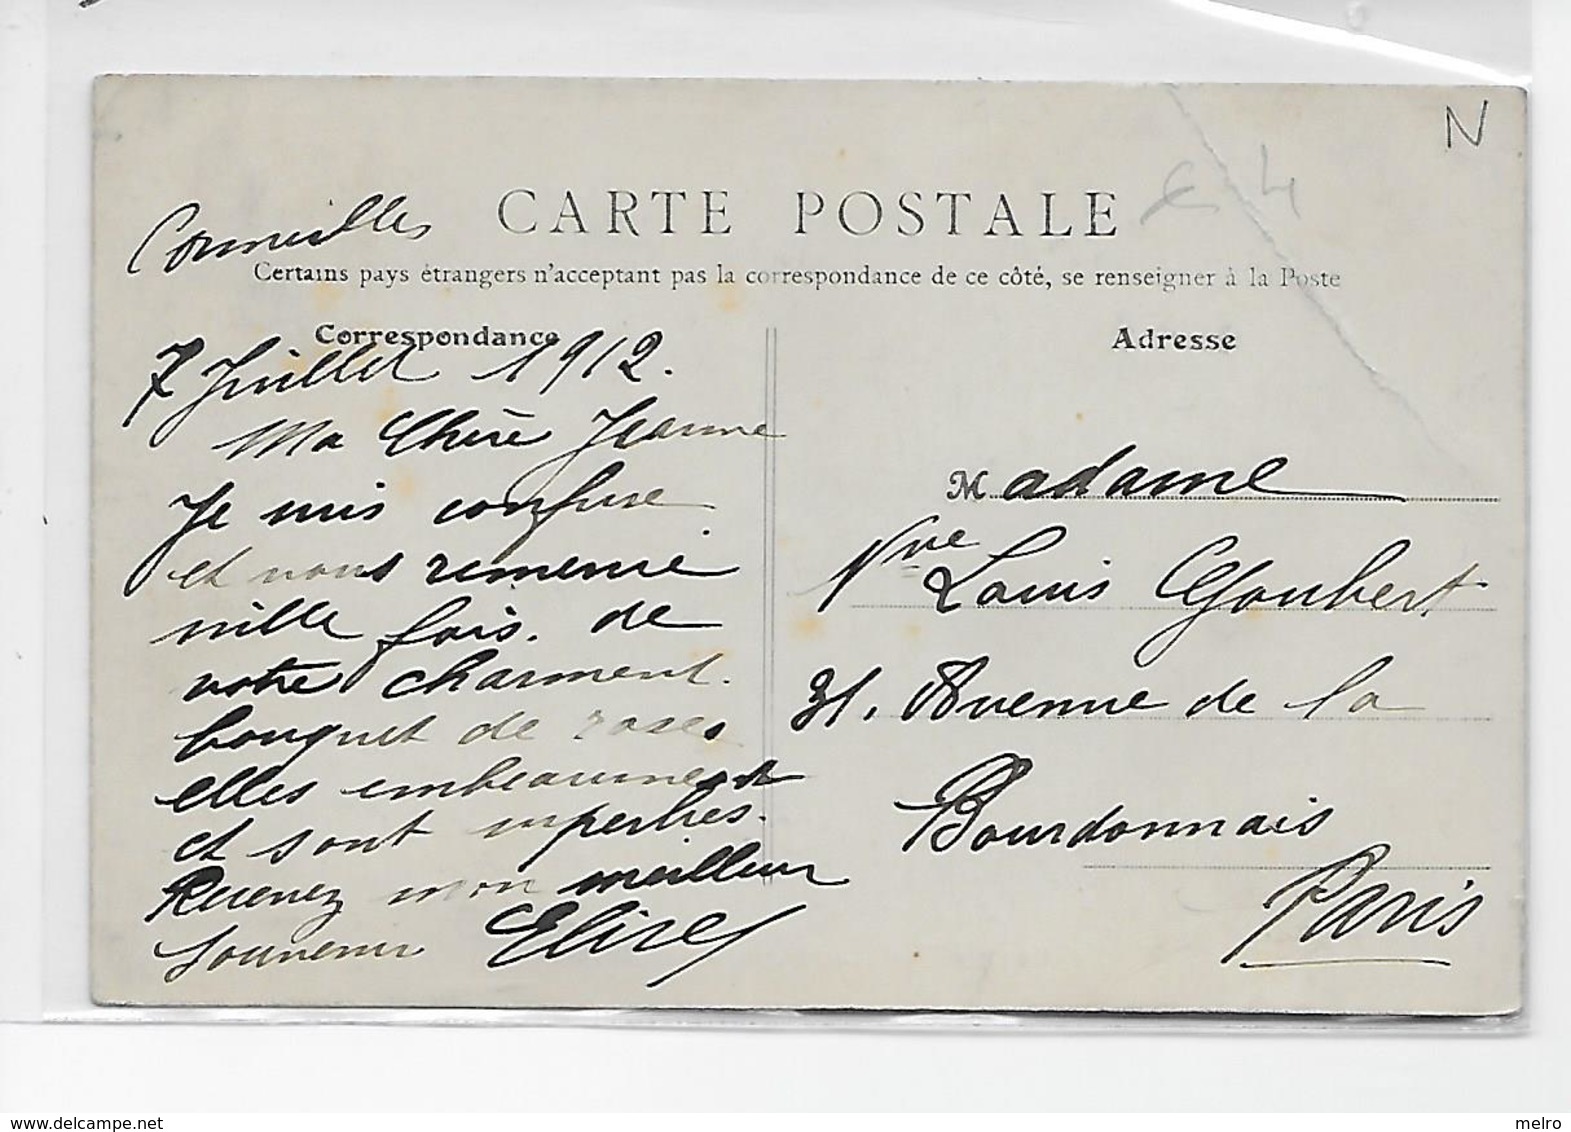 N
€ 4
CARTE POSTALE
Cormeilles
Certains pays étrangers n'acceptant pas la correspondance de ce côté, se renseigner à la Poste
Correspondance
7 Juillet 1912.
Ma Chère Jeanne
Je suis confuse
et vous remercie
mille fois. de
votre charment.
bouquet de roses
elles embeaument
et sont superbes.
Recevez mon meilleur
souvenir Elise
Adresse
Madame
Vve Louis Goubert
31. Avenue de la
Bourdonnais
Paris
delcampe.net
melro